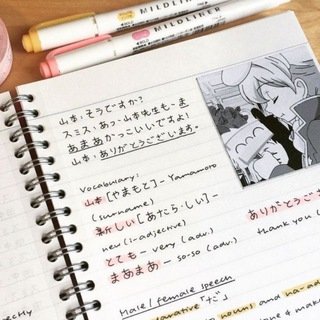 MILDLINER
MILDLINER
山本: そうですか?
スミス: あっ、山本先生も–ま
あまあかっこいいですよ!
山本: ありがとうございます。
Vocabulary:
山本 [やまもと] – Yamamoto
(surname)
新しい [あたらしい] –
new (i-adjective)
とても – very (adv.)
まあまあ – so-so (adv.)
ありがとうござ
thank you
Male/female speech
declarative 「だ」
nouns and na-ad